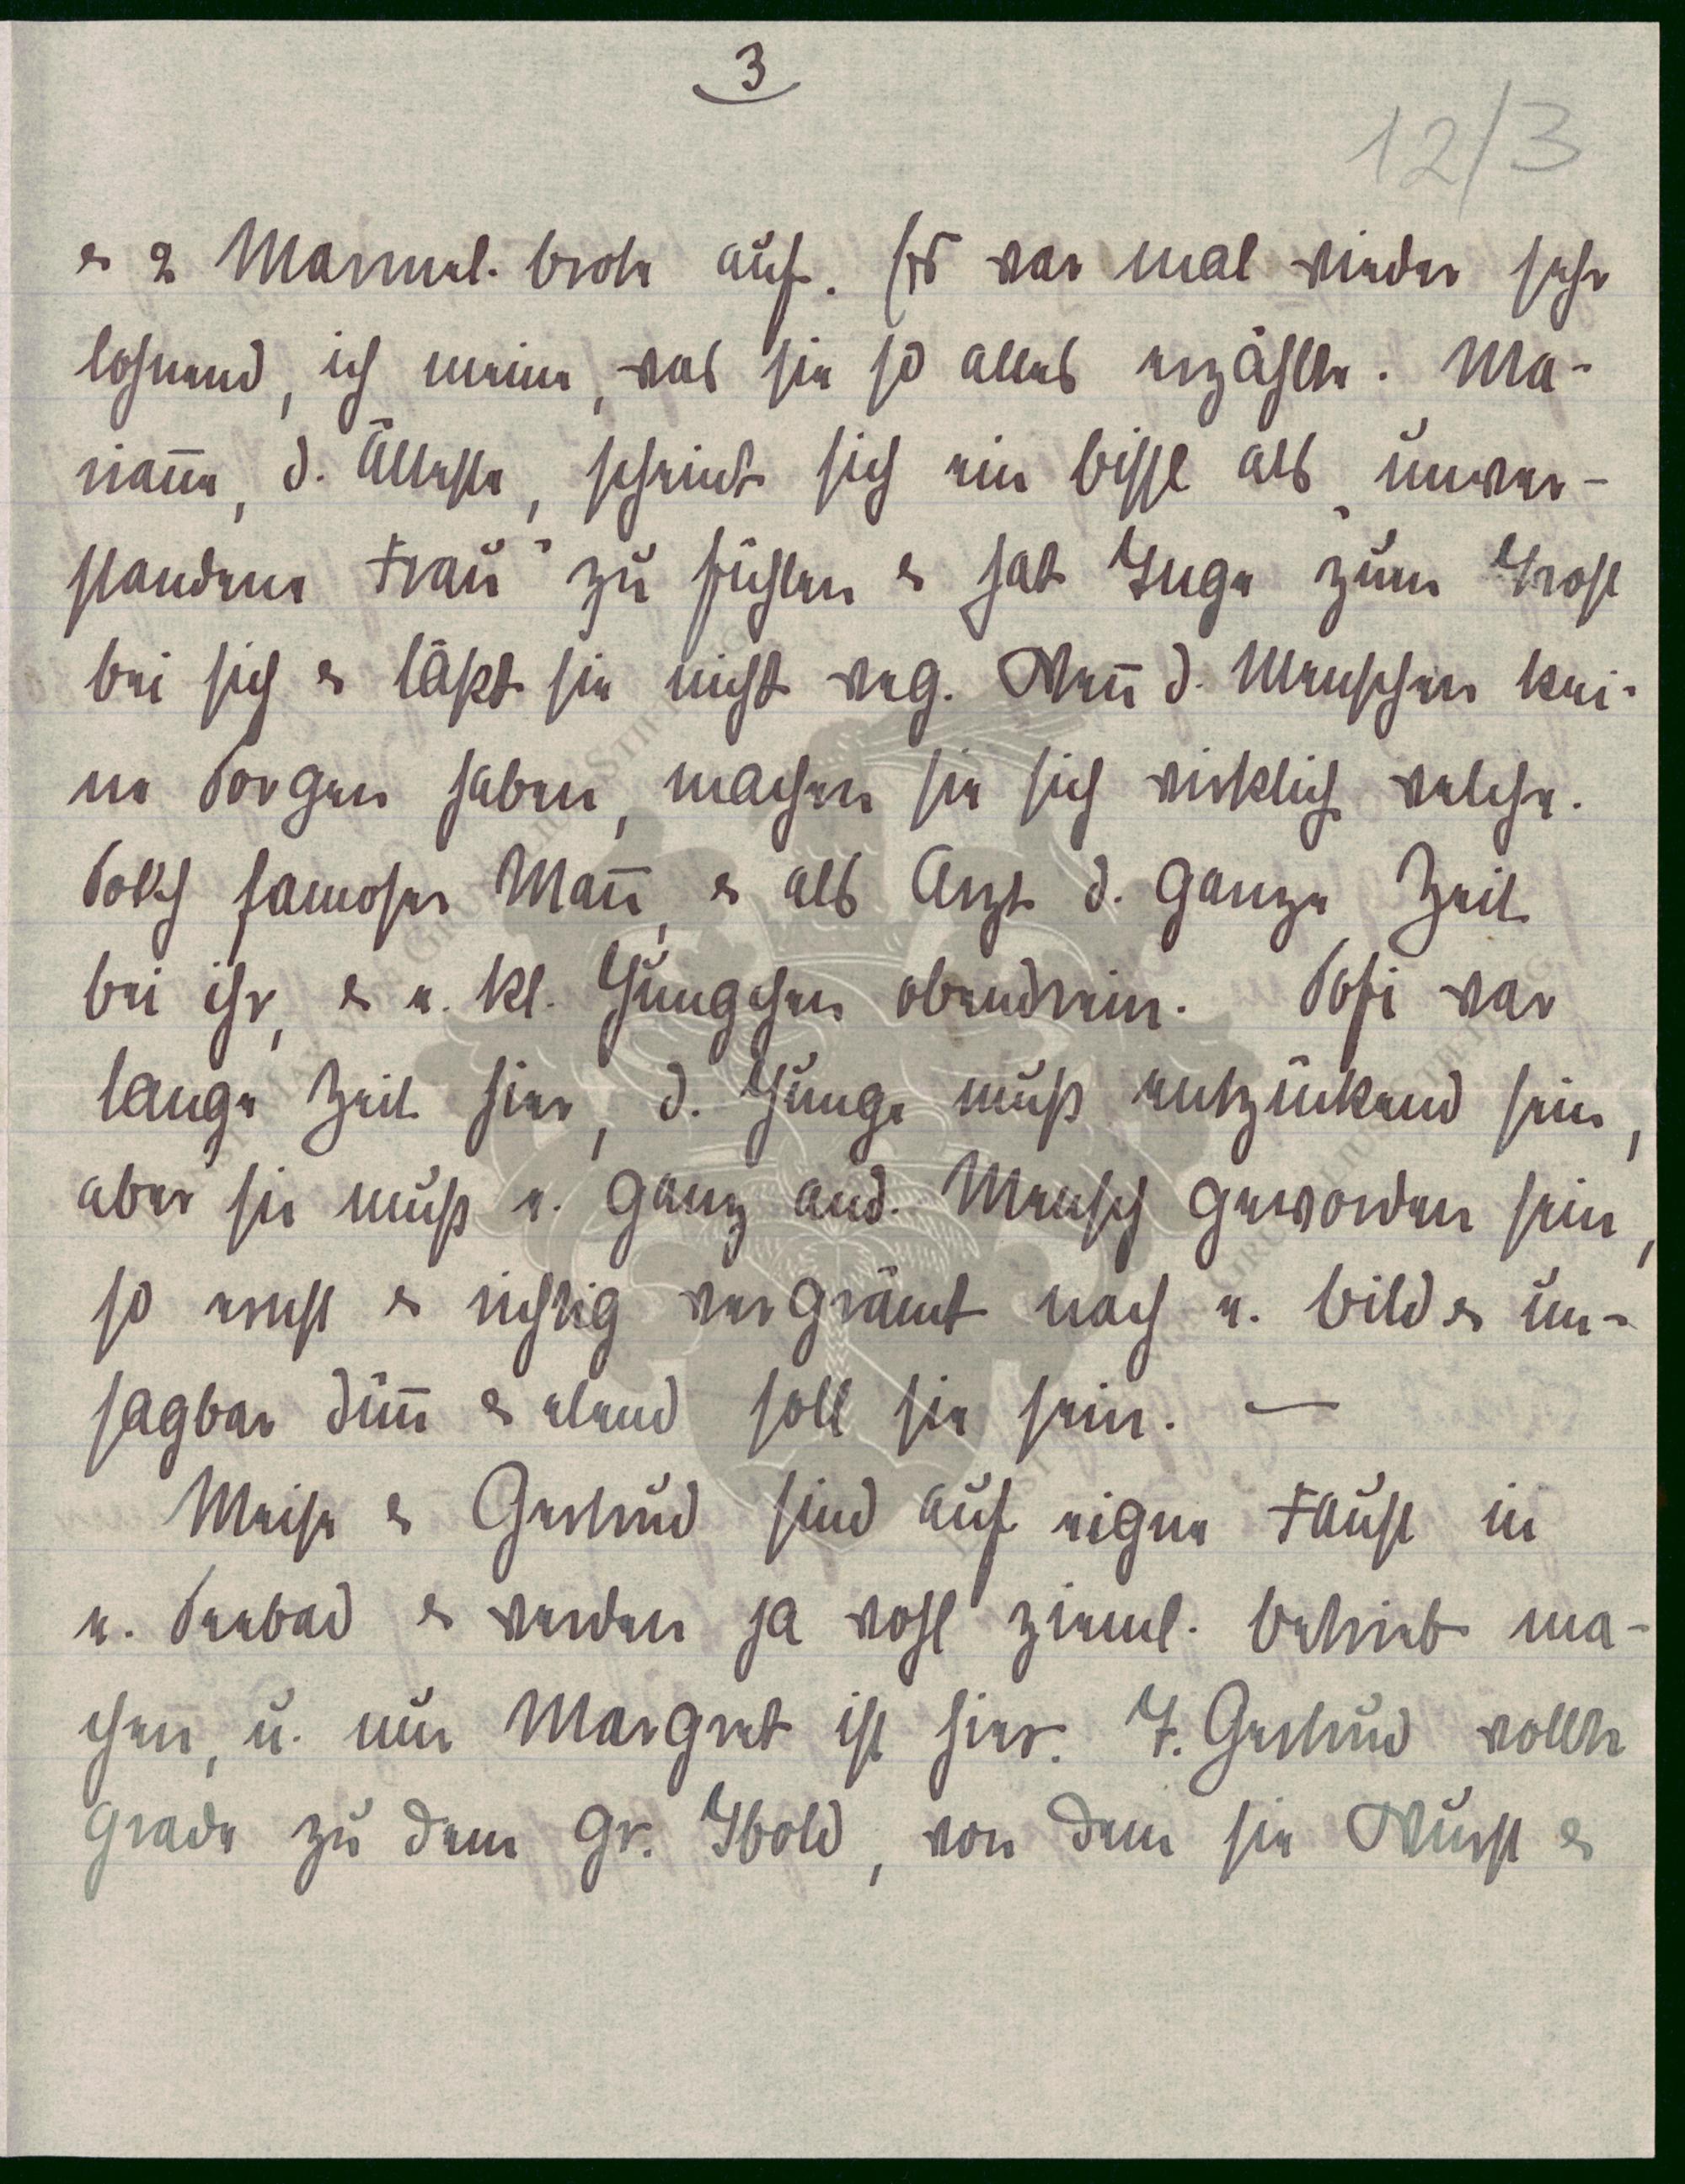 3
12/3
& 2 Marmel. brote auf. Es war mal wieder sehr
lohnend, ich meine, was sie so alles erzählte. Ma-
rianne, d. Älteste, scheint sich ein bissl als „unver-
standene Frau" zu fühlen & hat Inge zum Trost
bei sich & läßt sie nicht weg. Wenn d. Menschen kei-
ne Sorgen haben, machen sie sich wirklich welche.
Solch famoser Mann, & als Arzt d. ganze Zeit
bei ihr, & e. kl. Jüngchen obendrein. Sofi war
lange Zeit hier, d. Junge muß entzückend sein,
aber sie muß e. ganz and. Mensch geworden sein,
so ernst & richtig vergrämt nach e. Bild & un-
sagbar dünn & elend soll sie sein. —
Meise & Gertrud sind auf eigne Faust in
e. Seebad & werden ja wohl zieml. Betrieb ma-
chen, u. nur Margret ist hier. T. Gertrud wollte
grade zu dem Gr. Ibold, von dem sie Wurst &